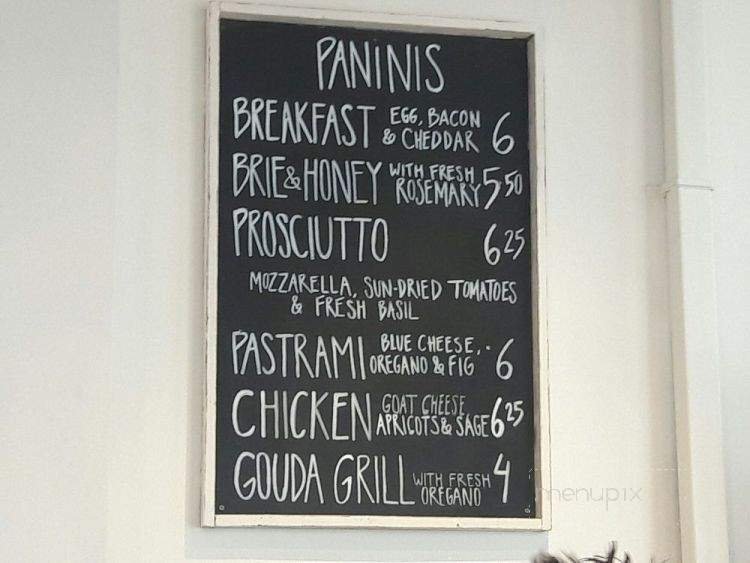 PANINIS
BREAKFAST EGG, BACON & CHEDDAR 6
BRIE & HONEY WITH FRESH ROSEMARY 5 50
PROSCIUTTO 6 25
MOZZARELLA, SUN-DRIED TOMATOES
& FRESH BASIL
PASTRAMI BLUE CHEESE, OREGANO & FIG 6
CHICKEN GOAT CHEESE APRICOTS & SAGE 6 25
GOUDA GRILL WITH FRESH OREGANO 4
menupix